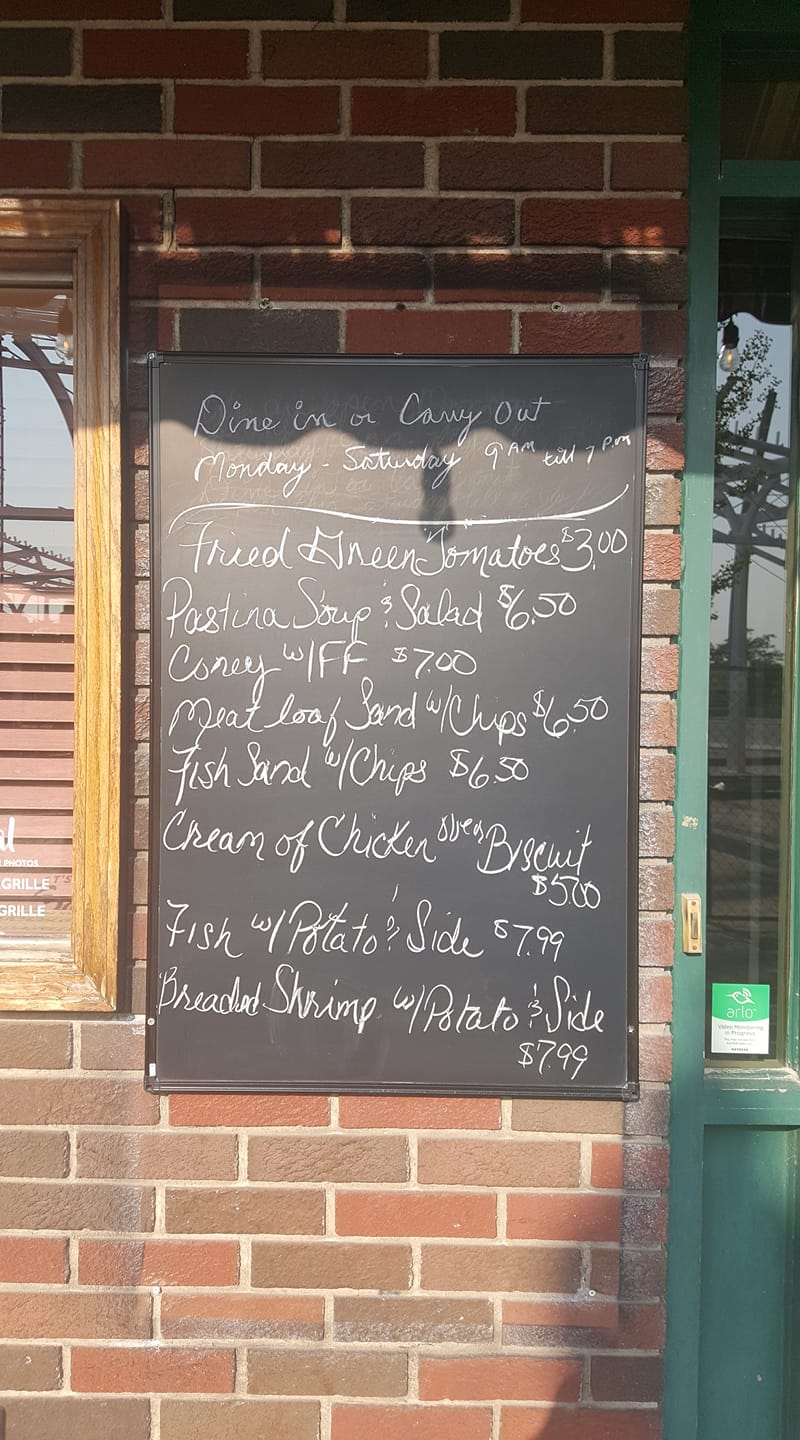 Dine in or Carry Out
Monday - Saturday 9 AM till 7 P.M
Fried Green Tomatoes $3.00
Pastina Soup & Salad $6.50
Coney w/FF $7.00
Meat loaf Sand w/Chips $6.50
Fish Sand w/Chips $6.50
Cream of Chicken over Biscuit
$5.00
Fish w/Potato & Side $7.99
Breaded Shrimp w/Potato & Side
$7.99
PHOTOS
GRILLE
GRILLE
arlo
Video Monitoring
in Progress